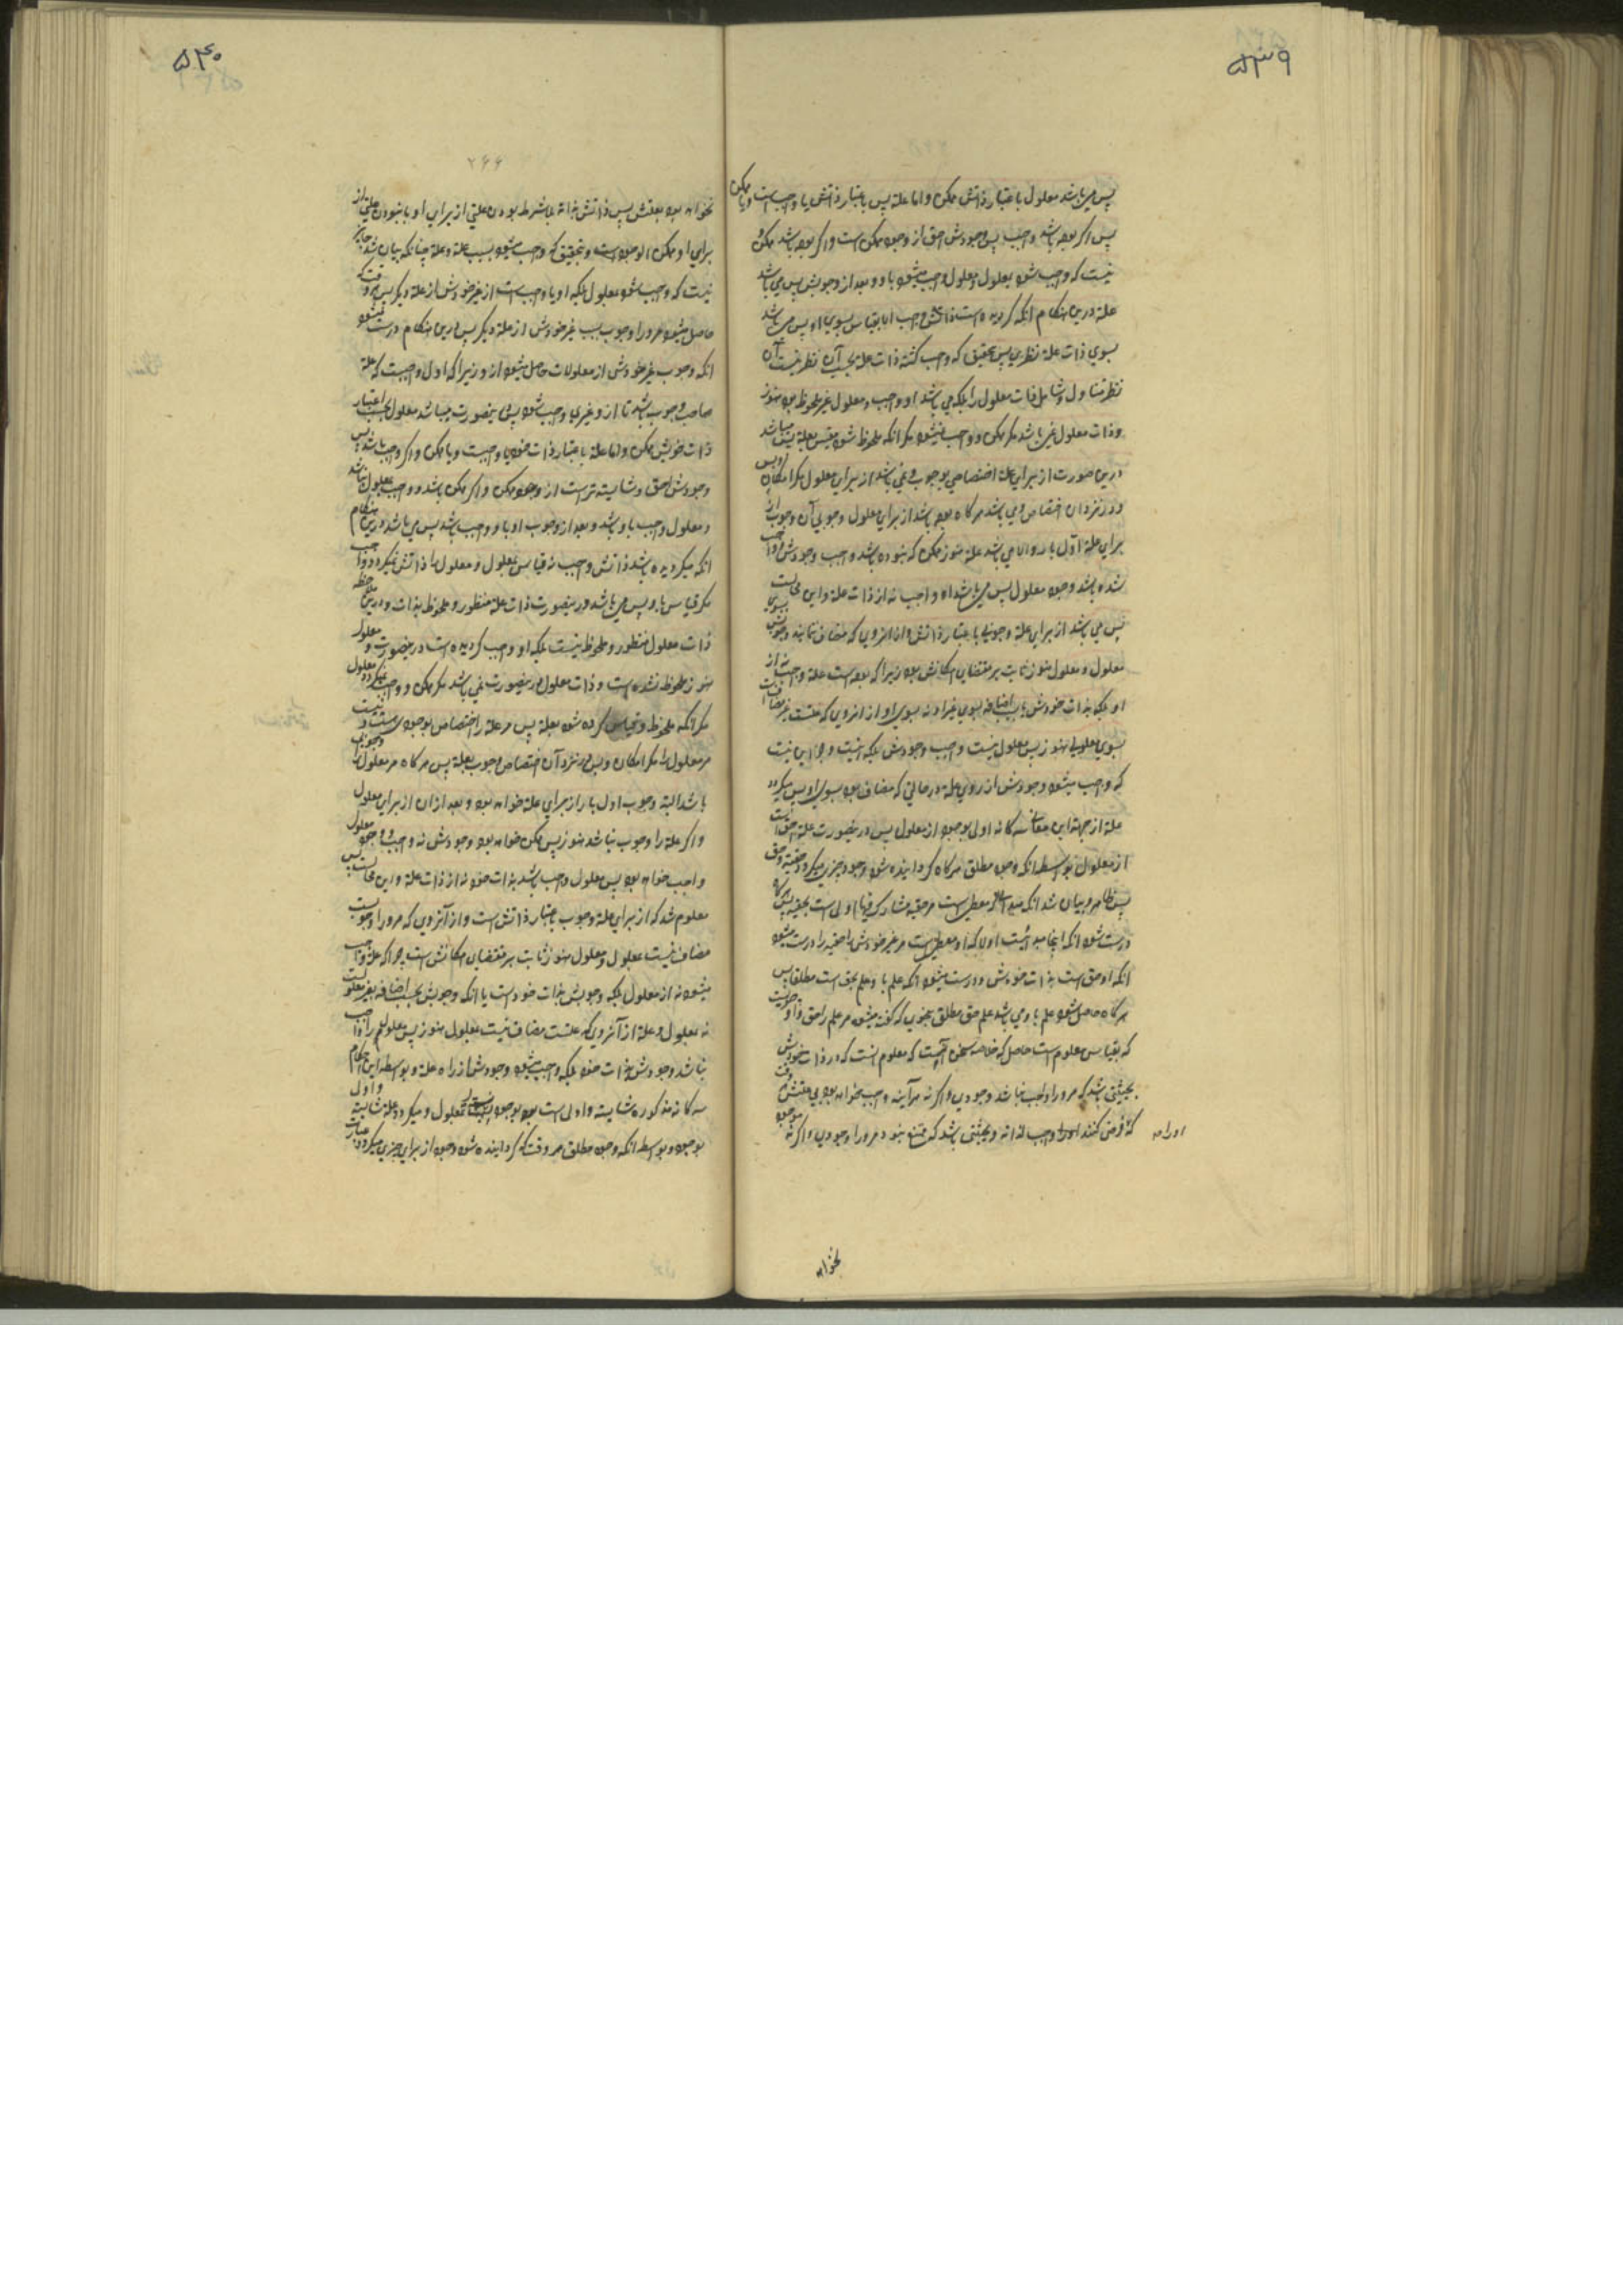 ۵۳۹
پس می باشد معلول باعتبار ذاتش ممکن و اما علة پس باعتبار ذاتش یا واجبست و یا ممکن
پس اگر بوده باشد واجب پس وجودش احق از وجود ممکن است و اگر بوده باشد ممکن و
نیست که واجب شود بمعلول و معلول واجب میشود باو و بعد از وجوبش پس می باشد
علة درین هنگام آنکه گردیده است ذاتش واجب بقیاس بسوی او پس می باشد
بسوی ذات علة نظری پس بتحقیق که واجب گشته ذات علة بحسب آن نظر نیست آن
نظر متناول و شامل ذات معلول را بلکه می باشد او واجب و معلول غیر ملحوظ بود هنوز
و ذات معلول نمی باشد مگر ممکن و واجب نمیشود مگر آنکه ملحوظ شود مقیس بعلة پس میباشد
درین صورت از برای علة اختصاصی بوجوب و نمی باشد از برای معلول مگر امکان و بس
و در نزد آن اختصاص و می باشد هرگاه بوده باشد از برای معلول وجوبی آن وجوب از
برای علة اول بار و الا می باشد علة هنوز ممکن که نبوده باشد واجب وجودش و واجب
شده باشد وجود معلول پس می باشد او واجب نه از ذات علة و این محالست
پس می باشد از برای علة وجوبی باعتبار ذاتش و از آنروی که مضاف نمایند وجوبش بسوی
معلول و معلول هنوز ثابت بر مقتضای امکانش بود زیرا که بوده است علة واجب نه از
او بلکه بذات خودش یا باضافه بسوی غیر او نه بسوی او و از آنروی که علتست غیر مضافست
بسوی معلولی هنوز پس معلول نیست واجب وجودش بلکه نیست و جز این نیست
که واجب میشود وجودش از روی علة در حالتی که مضاف بود بسوی او پس میگردد
علة از جهة این معانی سه گانه اولی بوجود از معلول پس در ینصورت علة احق است
از معلول بواسطه آنکه وجود مطلق هرگاه گردانیده شود وجود چیزی میگردد حقیقة و حق
پس ظاهر و بیان شد آنکه مبدأ معطی است مر حقیقة مشارک فیها اولی است بحقیقة پس هرگاه
درست شود آنکه اینجا مبدأیست اول که او معطی است مر غیر خودش را حقیقة را درست میشود
آنکه او حق است بذات خودش و درست میشود آنکه علم باو علم بحق است مطلقا پس
هرگاه حاصل شود علم باو می باشد علم حق مطلق بنحوی که گفته میشود مر علم را حق و او
که بقیاس معلوم است حاصل که خلاصه سخن آنست که معلوم است که در ذات خودش
بحیثیتی باشد که مر او را واجب نباشد وجودی و اگر نه هر آینه واجب خواهد بود بی علتش
که فرض کنند او را واجب لذاته و بحیثیتی باشد که ممتنع نبود مر او را وجودی و اگر نه
او را
نخواهد
۵۴۰
۲۶۶
نخواهد بود بعلتش پس ذاتش بذاته بلا شرط بودن علتی از برای او یا نبودن علتی از
برای او ممکن الوجود است و بتحقیق که واجب میشود بسبب علة و علة چنانکه بیان شد جایز
نیست که واجب شود بمعلول بلکه او یا واجب است از غیر خودش از علة دیگر پس هر وقت که
حاصل میشود مر او را وجوب بسبب غیر خودش از علة دیگر پس درین هنگام درست میشود
آنکه وجوب غیر خودش از معلولات حاصل میشود از و زیرا که اول واجبست که علة
صاحب وجوب باشد تا از و غیری واجب شود پس درینصورت میباشد معلول بحسب اعتبار
ذات خویش ممکن و اما علة باعتبار ذات خود یا واجبست و یا ممکن و اگر واجب باشد پس
وجودش احق و شایسته تر است از وجود ممکن و اگر ممکن باشد و واجب بمعلول نباشد
و معلول واجب باو باشد و بعد از وجوب او باو واجب باشد پس می باشد درین هنگام
آنکه میگردیده باشد ذاتش واجب نه قیاس بمعلول و معلول را ذاتش نمیگردد واجب
مگر قیاس باو پس می باشد درینصورت ذات علة منظور و ملحوظ بذات و درین ملاحظه
ذات معلول منظور و ملحوظ نیست بلکه او واجب گردیده است درینصورت و معلول
هنوز ملحوظ نشده است و ذات معلول درینصورت نمی باشد مگر ممکن و واجب نمیگردد معلول
مگر آنکه ملحوظ و قیاس کرده شود بعلة پس مر علة را اختصاص بوجوبست و نیست
مر معلول را مگر امکان و بس در نزد آن اختصاص وجوب بعلة پس هرگاه مر معلول را وجوبی
باشد البته وجوب اول بار از برای علة خواهد بود و بعد از آن از برای معلول
و اگر علة را وجوب نباشد هنوز پس ممکن خواهد بود وجودش نه واجب و وجود معلول
واجب خواهد بود پس معلول واجب باشد بذات خود نه از ذات علة و این محالست پس
معلوم شد که از برای علة وجوب باعتبار ذاتش است و از آنروی که مر او را وجوبست
مضاف نیست بمعلول و معلول هنوز ثابت بر مقتضای امکانش است چرا که علة واجب
میشود نه از معلول بلکه وجوبش بذات خودست یا آنکه وجوبش بحسب اضافه بغیر معلولست
نه معلول و علة از آنروی که علتست مضاف نیست بمعلول هنوز پس معلول مر او را واجب
نباشد وجودش بذات خود بلکه واجب میشود وجودش از راه علة و بواسطه این احکام
سه گانه مذکوره شایسته و اولی است بوجود بمعلول و میگردد علة شایسته و اول
بوجود و بواسطه آنکه وجود مطلق هر وقت که گردانیده شود وجود از برای چیزی میگردد عبارت